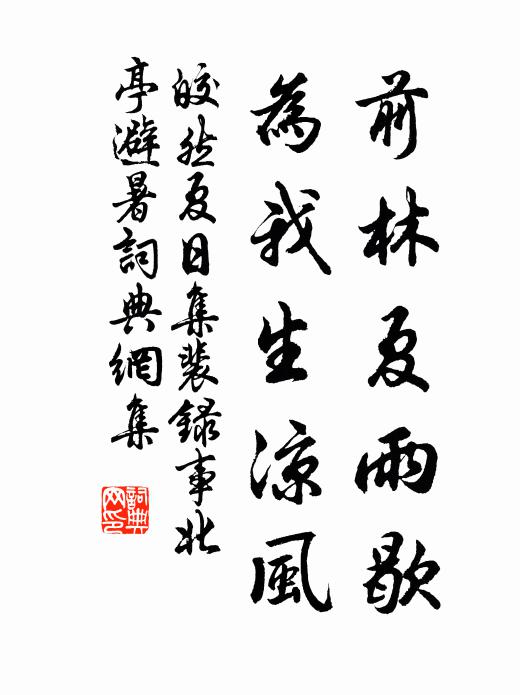 前林夏雨歇
為我生涼風
皎然夏日集裴錄事北
亭避暑詞典網集
詞典網印